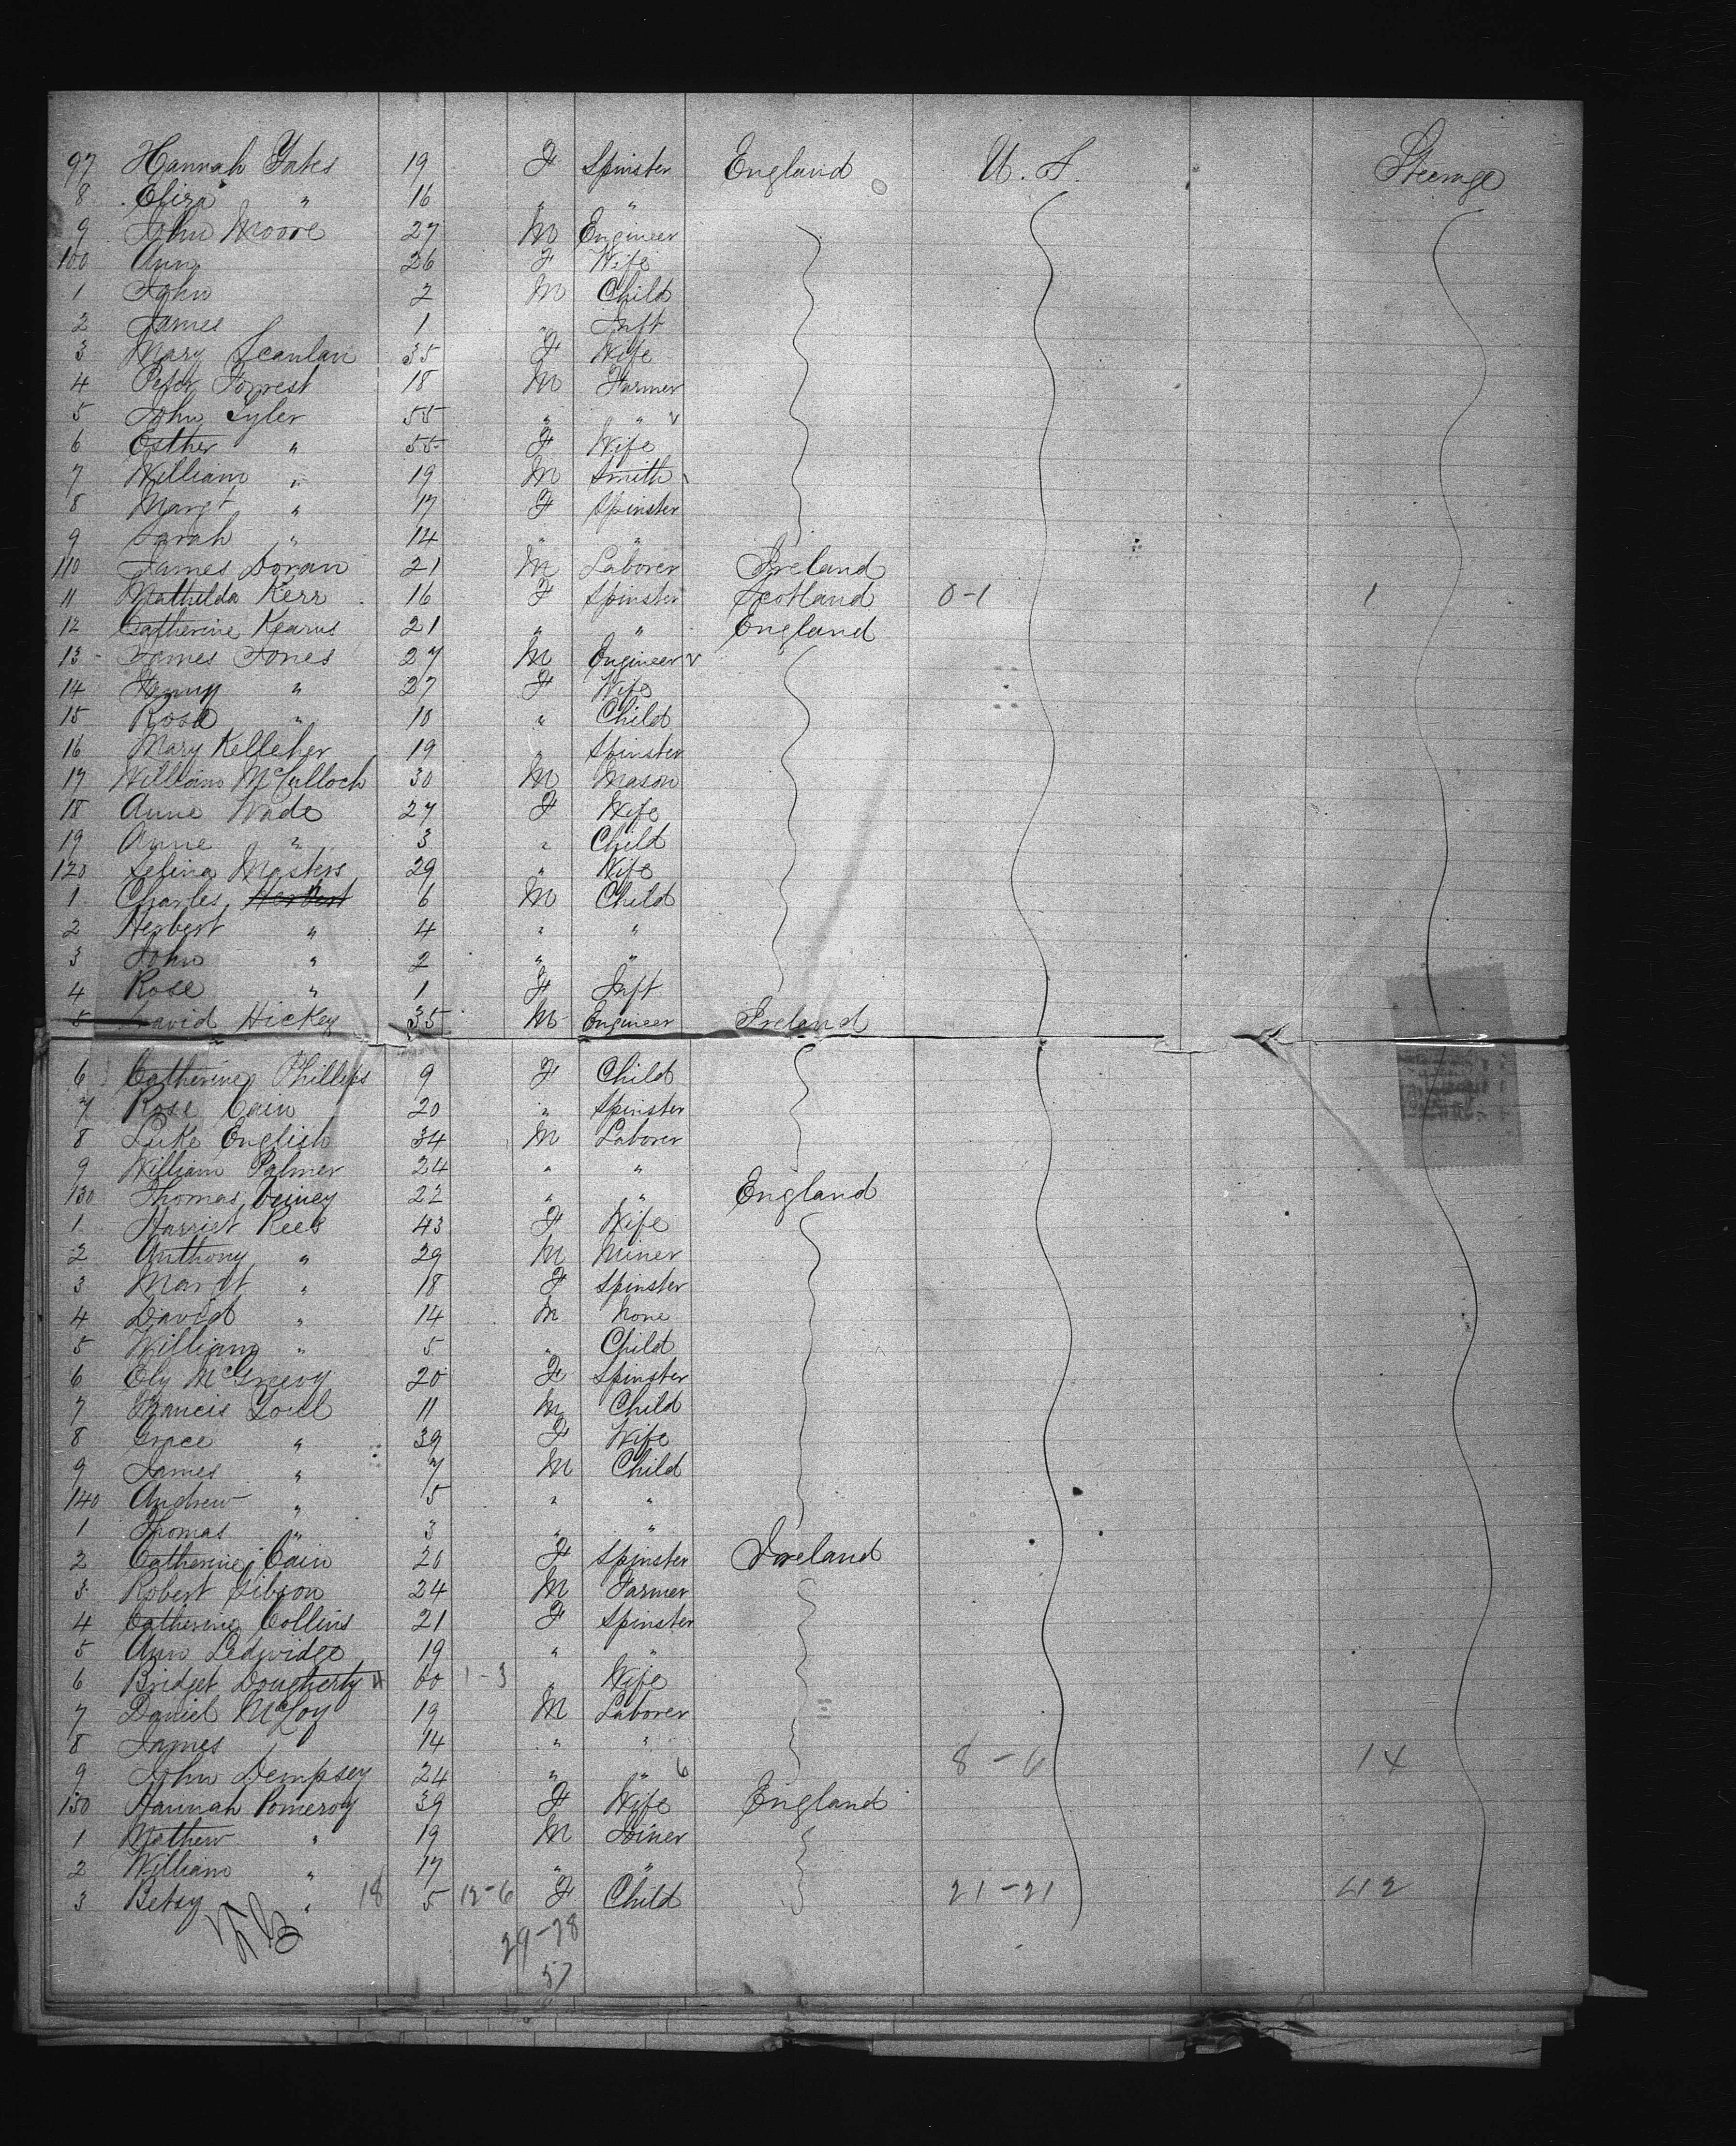 97 Hannah Yates 19 F Spinster England U.S. Steerage
8 Eliza " 16 " "
9 John Moore 27 M Engineer
100 Ann 26 F Wife
1 John 2 M Child
2 James 1 " Inft
3 Mary Scanlan 35 F Wife
4 Peter Forrest 18 M Farmer
5 John Tyler 55 " "
6 Esther " 55 F Wife
7 William " 19 M Smith
8 Margt " 17 F Spinster
9 Sarah " 14 " "
110 James Doran 21 M Laborer Ireland
11 Mathilda Kerr 16 F Spinster Scotland 0-1 1
12 Catherine Kearns 21 " " England
13 James Jones 27 M Engineer
14 Fanny " 27 F Wife
15 Rosa " 10 " Child
16 Mary Kelleher 19 " Spinster
17 William McCulloch 30 M Mason
18 Anne Wade 27 F Wife
19 Anne " 3 " Child
120 Selina Masters 29 " Wife
1 Charles Herbert 6 M Child
2 Herbert " 4 " "
3 John " 2 " "
4 Rose " 1 F Inft
5 David Hickey 35 M Engineer Ireland
6 Catherine Phillips 9 F Child
7 Rose Cain 20 " Spinster
8 Luke English 34 M Laborer
9 William Palmer 24 " "
130 Thomas 22 " " England
1 Harriet Rees 43 F Wife
2 Anthony " 29 M Miner
3 Margt " 18 F Spinster
4 David " 14 M None
5 William " 5 " Child
6 McGrievy 20 F Spinster
7 Francis 11 M Child
8 Grace " 39 F Wife
9 James " 7 M Child
140 Andrew " 5 " "
1 Thomas " 3 " "
2 Catherine Cain 20 F Spinster Ireland
3 Robert Gibson 24 M Farmer
4 Catherine Collins 21 F Spinster
5 Ann Ledwidge 19 " "
6 Bridget Dougherty 60 1-3 " Wife
7 Daniel McLoy 19 M Laborer
8 James " 14 " "
9 John Dempsey 24 " " 8-6 14
150 Hannah Pomeroy 39 F Wife England
1 Mathew " 19 M Joiner
2 William " 17 " "
3 Betsy " 18 5 12-6 F Child 21-21 42
29-28
57